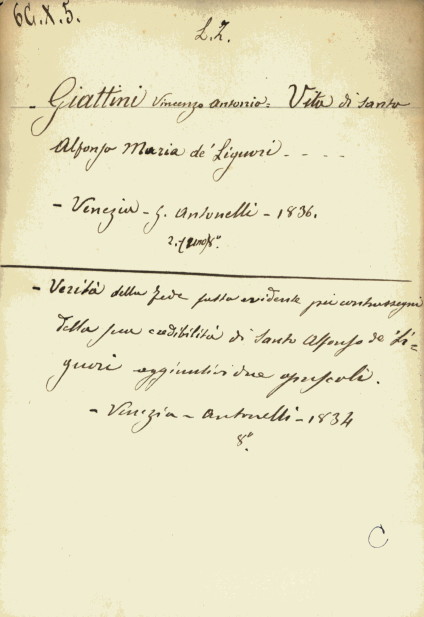 6G.X.5.
L.Z.
- Giattini Vincenzo Antonio = Vita di Santo
Alfonso Maria de' Liguori - - - -
- Venezia - G. Antonelli - 1836.
8°.
- Verità della Fede fatta evidente pei contrassegni
della sua credibilità di Santo Alfonso de' Li=
guori aggiuntivi due opuscoli.
- Venezia - Antonelli - 1834
8°.
C